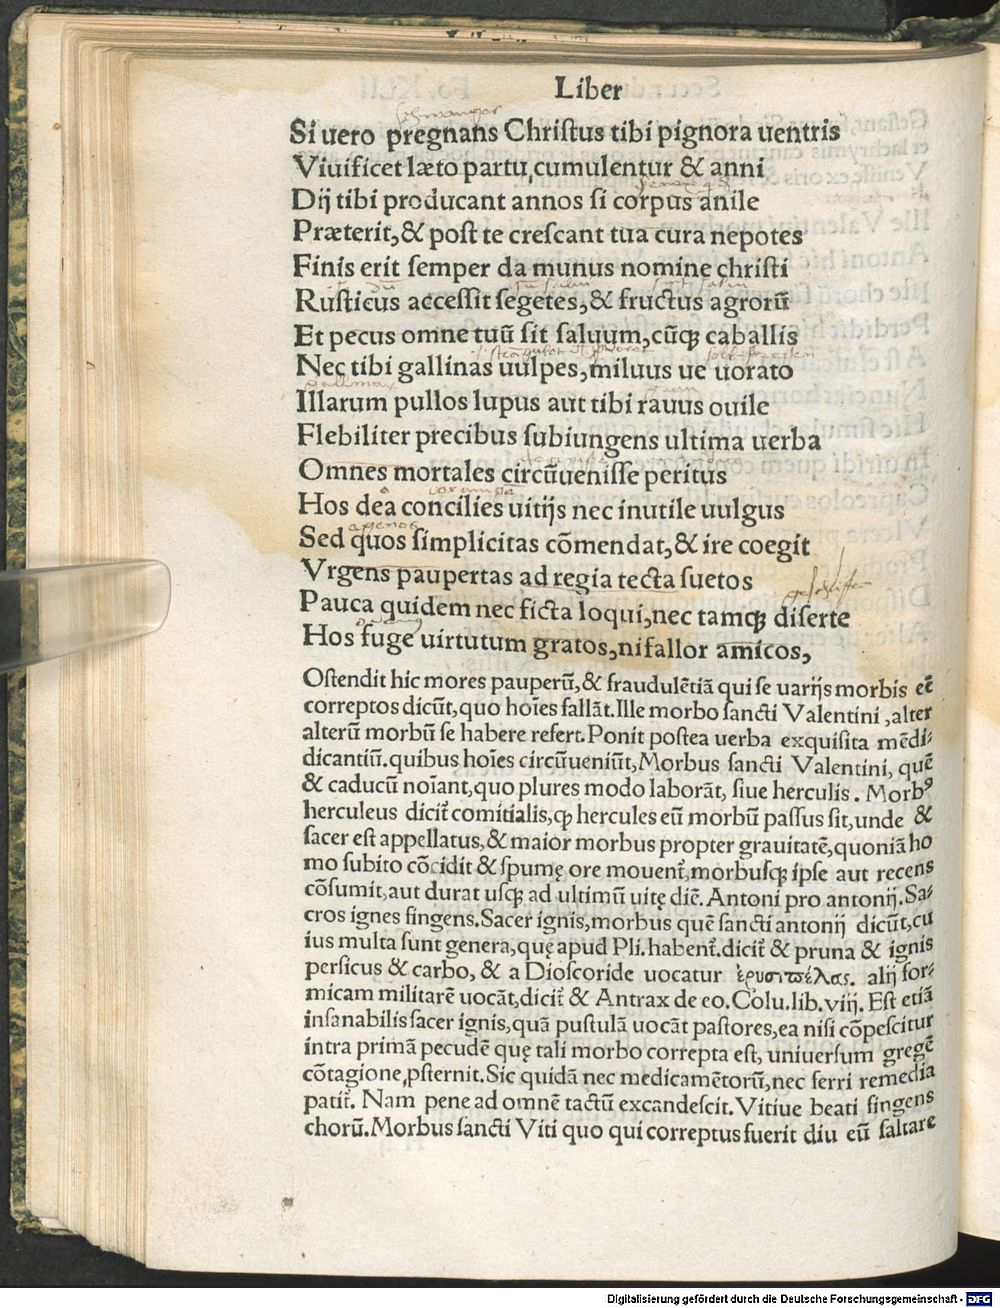 Liber
Si uero pregnans Chriſtus tibi pignora uentris
Viuificet læto partu, cumulentur & anni
Dij tibi producant annos ſi corpus anile
Præterit, & poſt te creſcant tua cura nepotes
Finis erit ſemper da munus nomine chriſti
Ruſticus acceſſit ſegetes, & fructus agrorũ
Et pecus omne tuũ ſit ſaluum, cũq; caballis
Nec tibi gallinas uulpes, miluus ue uorato
Illarum pullos lupus aut tibi rauus ouile
Flebiliter precibus ſubiungens ultima uerba
Omnes mortales circũueniſſe peritus
Hos dea concilies uitijs nec inutile uulgus
Sed quos ſimplicitas cõmendat, & ire coegit
Vrgens paupertas ad regia tecta ſuetos
Pauca quidem nec ficta loqui, nec tamq; diſerte
Hos fuge uirtutum gratos, ni fallor amicos,
Oſtendit hic mores pauperũ, & fraudulẽtiã qui ſe uarijs morbis eẽ
correptos dicũt, quo hoīes fallãt. Ille morbo ſancti Valentini, alter
alterũ morbũ ſe habere refert. Ponit poſtea uerba exquiſita mẽdi⸗
dicantiũ. quibus hoīes circũueniũt, Morbus ſancti Valentini, quẽ
& caducũ noīant, quo plures modo laborãt, ſiue herculis. Morbꝰ
herculeus dicit̃ comitialis, ꝙ hercules eũ morbũ paſſus ſit, unde &
ſacer eſt appellatus, & maior morbus propter grauitatẽ, quoniã ho
mo ſubito cõcidit & ſpumę ore mouent̃, morbuſq; ipſe aut recens
cõſumit, aut durat uſq; ad ultimũ uitę diẽ. Antoni pro antonij. Sa⸗
cros ignes fingens. Sacer ignis, morbus quẽ ſancti antonij dicũt, cu
ius multa ſunt genera, quę apud Pli. habent̃. dicit̃ & pruna & ignis
perſicus & carbo, & a Dioſcoride uocatur ἐρυσιπέλας. alij for⸗
micam militarẽ uocãt, dicit̃ & Antrax de eo. Colu. lib. viij. Eſt etiã
inſanabilis ſacer ignis, quã puſtulã uocãt paſtores, ea niſi cõpeſcitur
intra primã pecudẽ quę tali morbo correpta eſt, uniuerſum gregẽ
cõtagione ꝓſternit. Sic quidã nec medicamẽtorũ, nec ferri remedia
patit̃. Nam pene ad omnẽ tactũ excandeſcit. Vitiue beati fingens
chorũ. Morbus ſancti Viti quo qui correptus fuerit diu eũ ſaltare
Digitalisierung gefördert durch die Deutsche Forschungsgemeinschaft - DFG